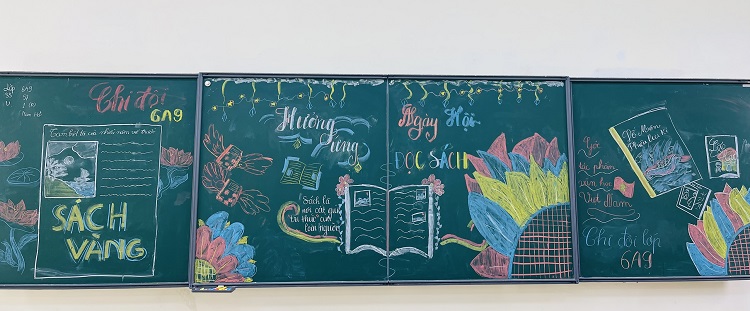 Lớp 6A9
SS 51
Chi đội
6A9
SÁCH
VÀNG
Hưởng
ứng
Sách là
nơi cất giữ
"tri thức" của
loài người
Ngày Hội
ĐỌC SÁCH
Dế Mèn
Phiêu lưu kí
tác phẩm
văn học
Việt Nam
Chi đội lớp
6A9